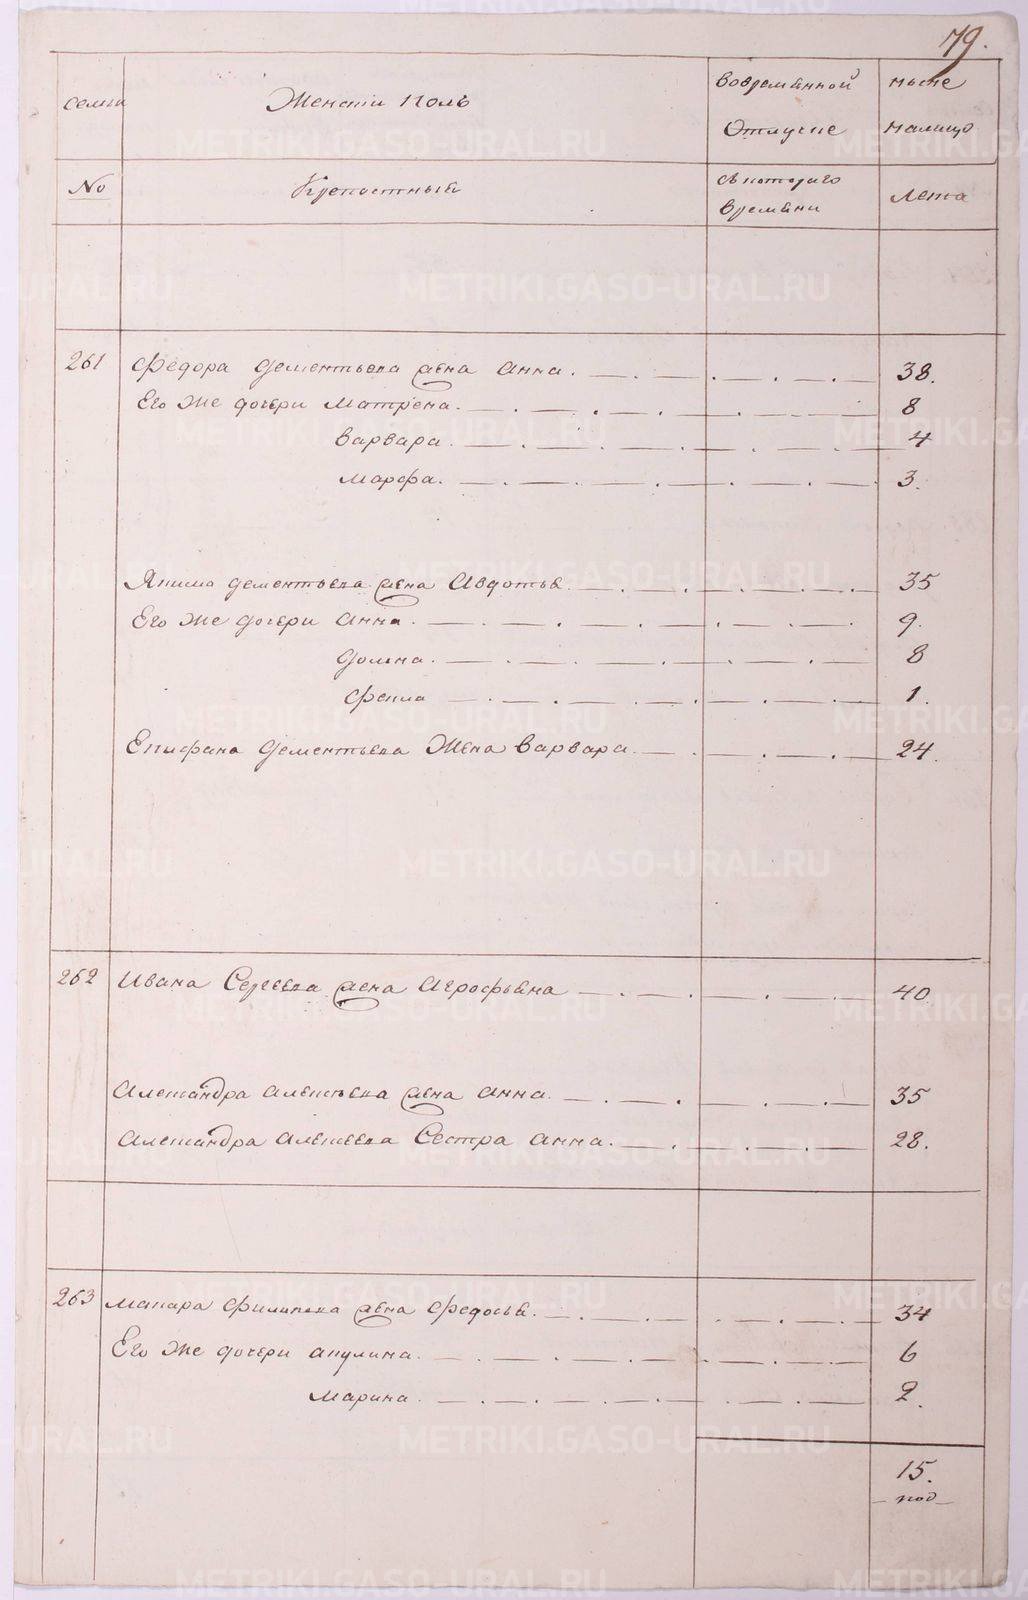 79.
семьи
Женски полъ
вовременной
ныне
Отлучке
налицо
No
Крепостныя
Лета
времени
261 Федора Дементьева жена Анна. 38.
Его же дочери Матрена. 8
Варвара. 4
Марфа. 3.
Якима Дементьева жена Авдотья 35
Его же дочери Анна. 9.
8
Фекла 1.
Епифана Дементьева Жена Варвара. 24.
262 Ивана Сергеева жена Аграфьена 40.
Александра Алексеева жена Анна. 35
Александра Алексеева Сестра Анна. 28.
263 Макара Филипева жена Федосья. 34
Его же дочери Акулина. 6
Марина. 2.
15.
METRIKI.GASO-URAL.RU